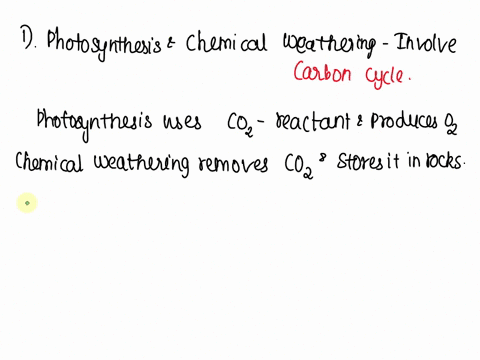 1). Photosynthesis & Chemical Weathering - Involve
Carbon Cycle.
Photosynthesis uses CO₂ - reactant & Produces O₂
Chemical weathering removes CO₂ & Stores it in rocks.